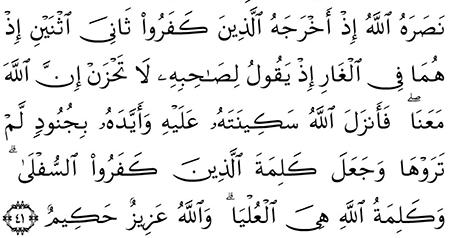 نَصَرَهُ ٱللَّهُ إِذۡ أَخۡرَجَهُ ٱلَّذِينَ كَفَرُواْ ثَانِيَ ٱثۡنَيۡنِ إِذۡ
هُمَا فِي ٱلۡغَارِ إِذۡ يَقُولُ لِصَٰحِبِهِۦ لَا تَحۡزَنۡ إِنَّ ٱللَّهَ
مَعَنَاۖ فَأَنزَلَ ٱللَّهُ سَكِينَتَهُۥ عَلَيۡهِ وَأَيَّدَهُۥ بِجُنُودٖ لَّمۡ
تَرَوۡهَا وَجَعَلَ كَلِمَةَ ٱلَّذِينَ كَفَرُواْ ٱلسُّفۡلَىٰۗ
وَكَلِمَةُ ٱللَّهِ هِيَ ٱلۡعُلۡيَاۗ وَٱللَّهُ عَزِيزٌ حَكِيمٌ ٤١